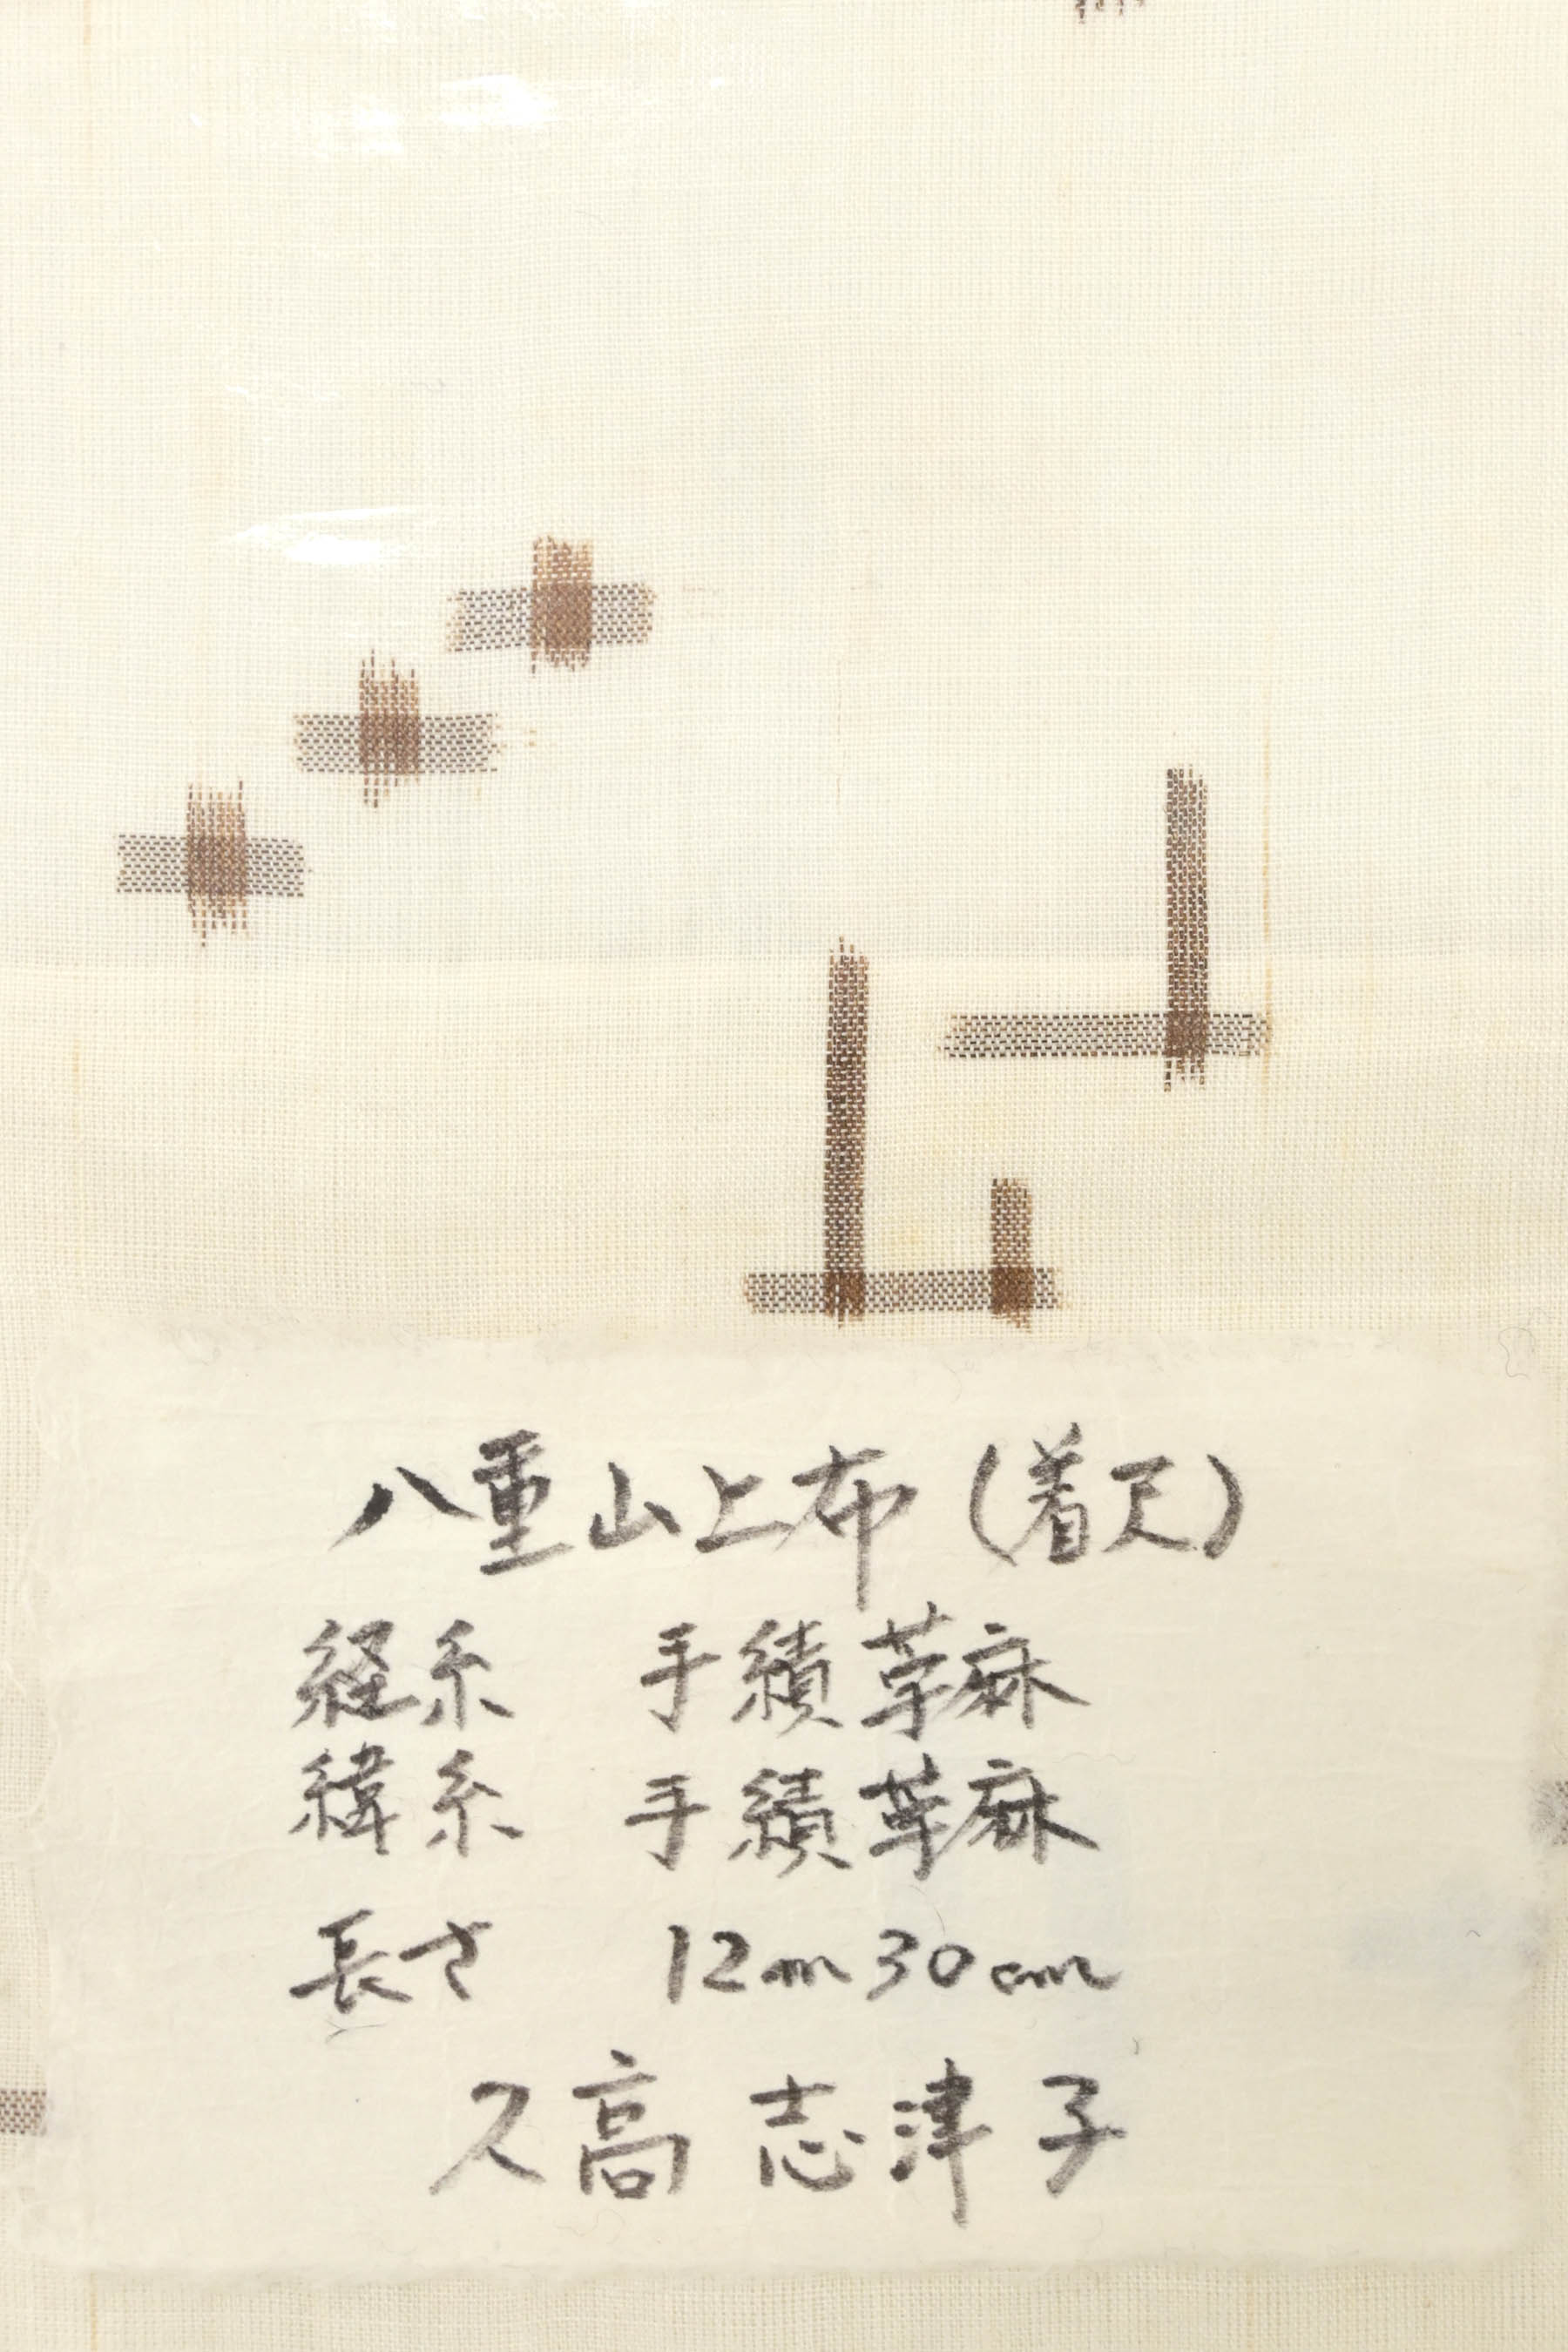 八重山上布(着尺)
経糸 手績苧麻
緯糸 手績苧麻
長さ 12m30cm
久高 志津子